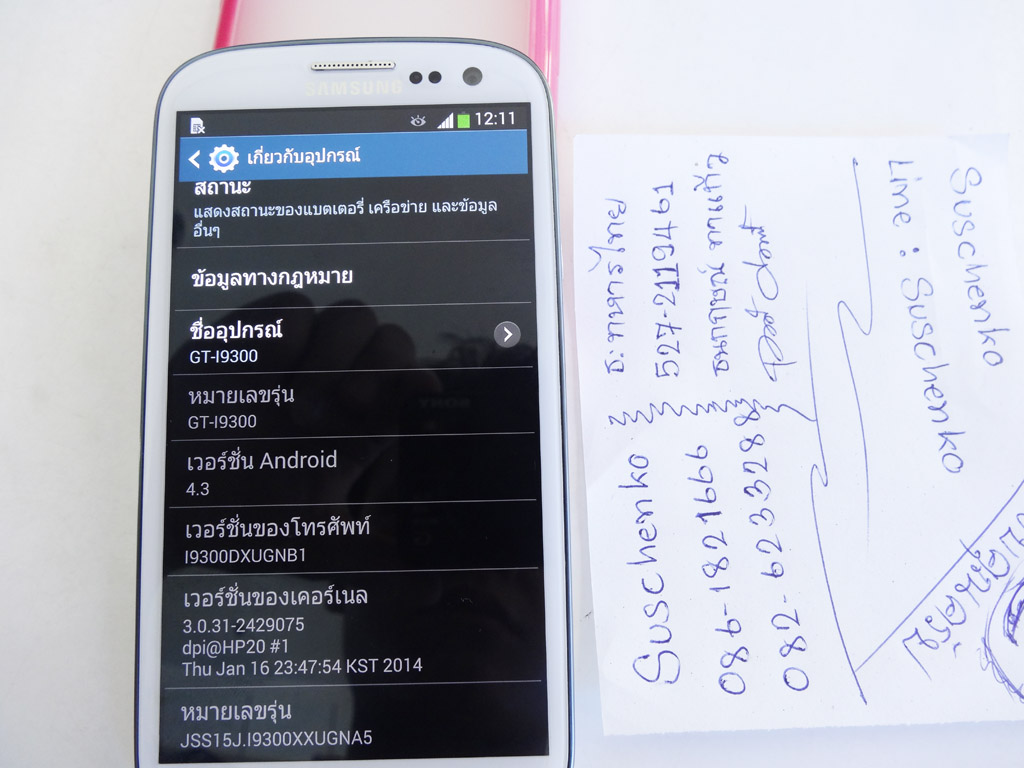 SAMSUNG
12:11
เกี่ยวกับอุปกรณ์
สถานะ
แสดงสถานะของแบตเตอรี่ เครือข่าย และข้อมูล
อื่นๆ
ข้อมูลทางกฎหมาย
ชื่ออุปกรณ์
GT-I9300
หมายเลขรุ่น
GT-I9300
เวอร์ชั่น Android
4.3
เวอร์ชั่นของโทรศัพท์
I9300DXUGNB1
เวอร์ชั่นของเคอร์เนล
3.0.31-2429075
dpi@HP20 #1
Thu Jan 16 23:47:54 KST 2014
หมายเลขรุ่น
JSS15J.I9300XXUGNA5
Suschenko
086-1821666
082-6233288
ธ.ทหารไทย
527-2119461
Suschenko
Line : Suschenko